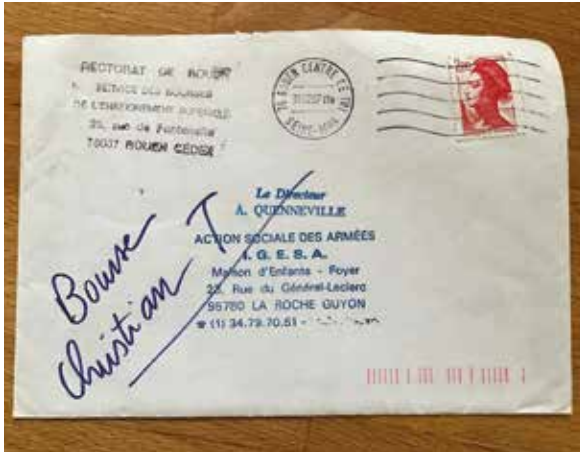 RECTORAT DE ROUEN
SERVICE DES BOURSES
DE L'ENSEIGNEMENT SUPERIEUR
25, rue de Fontenelle
76037 ROUEN CEDEX
76 ROUEN CENTRE
SEINE-MME
Le Directeur
A. QUENNEVILLE
ACTION SOCIALE DES ARMÉES
I. G. E. S. A.
Maison d'Enfants - Foyer
23, Rue du Général-Leclerc
95780 LA ROCHE GUYON
☎ (1) 34.79.70.51 -
Bourse
Christian T